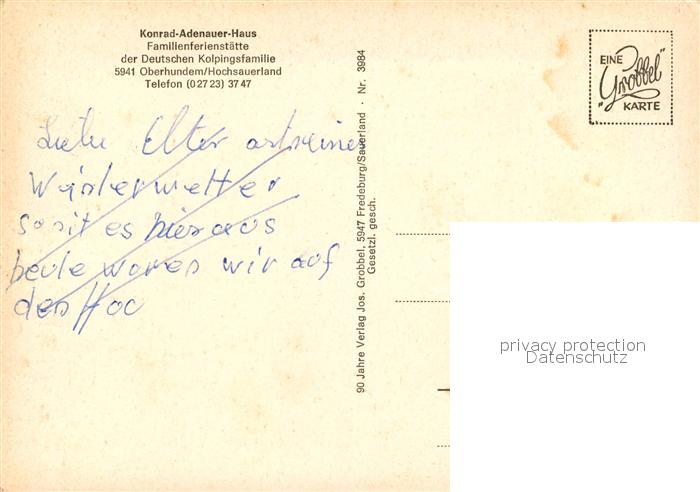 Konrad-Adenauer-Haus
Familienferienstätte
der Deutschen Kolpingsfamilie
5941 Oberhundem/Hochsauerland
Telefon (02723) 3747
Elter
wetter
es hier aus
heute waren wir auf
den Hoc
90 Jahre Verlag Jos. Grobbel, 5947 Fredeburg/Sauerland · Nr. 3984
Gesetzl. gesch.
EINE
„Grobbel”
KARTE
privacy protection
Datenschutz